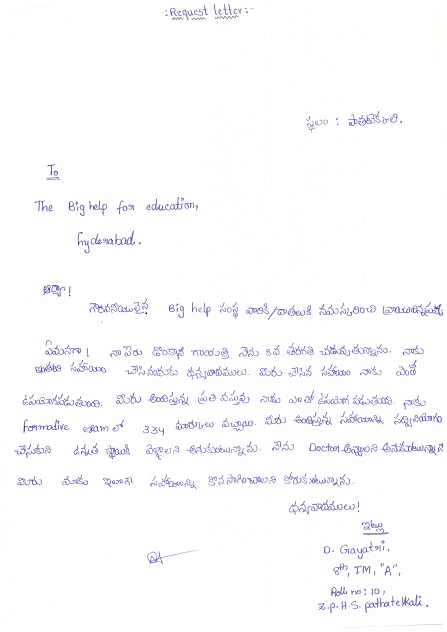 -: Request letter:-
స్థలం : పాతటెక్కలి.
To
The Big help for education,
hyderabad.
ఆర్యా!
గౌరవనీయులైన Big help సంస్థ వారికి/దాతలుకి నమస్కరించి వ్రాయుచున్నది
ఏమనగా! నా పేరు గాయత్రి నేను 8వ తరగతి చదువుతున్నాను. నాకు
ఇంతటి సహాయం చేసినందుకు ధన్యవాదములు. మీరు చేసిన సహాయం నాకు ఎంతో
ఉపయోగపడుతుంది. మీరు అందిస్తున్న ప్రతి వస్తువు నాకు ఎంతో ఉపయోగపడుతుంది. నాకు
formative exam లో 334 మార్కులు వచ్చాయి. మీరు అందిస్తున్న సహాయాన్ని సద్వినియోగం
చేసుకుని ఉన్నత స్థాయికి వెళ్లాలని అనుకుంటున్నాను. నేను Doctor అవ్వాలని అనుకుంటున్నాను
మీరు మాకు ఇలాగా సహాయాన్ని కొనసాగించాలని కోరుకుంటున్నాను.
ధన్యవాదములు!
ఇట్లు
D. Gayatri,
8th, TM, "A",
Roll no: 10,
Z.p.H.S. pathatekkali.